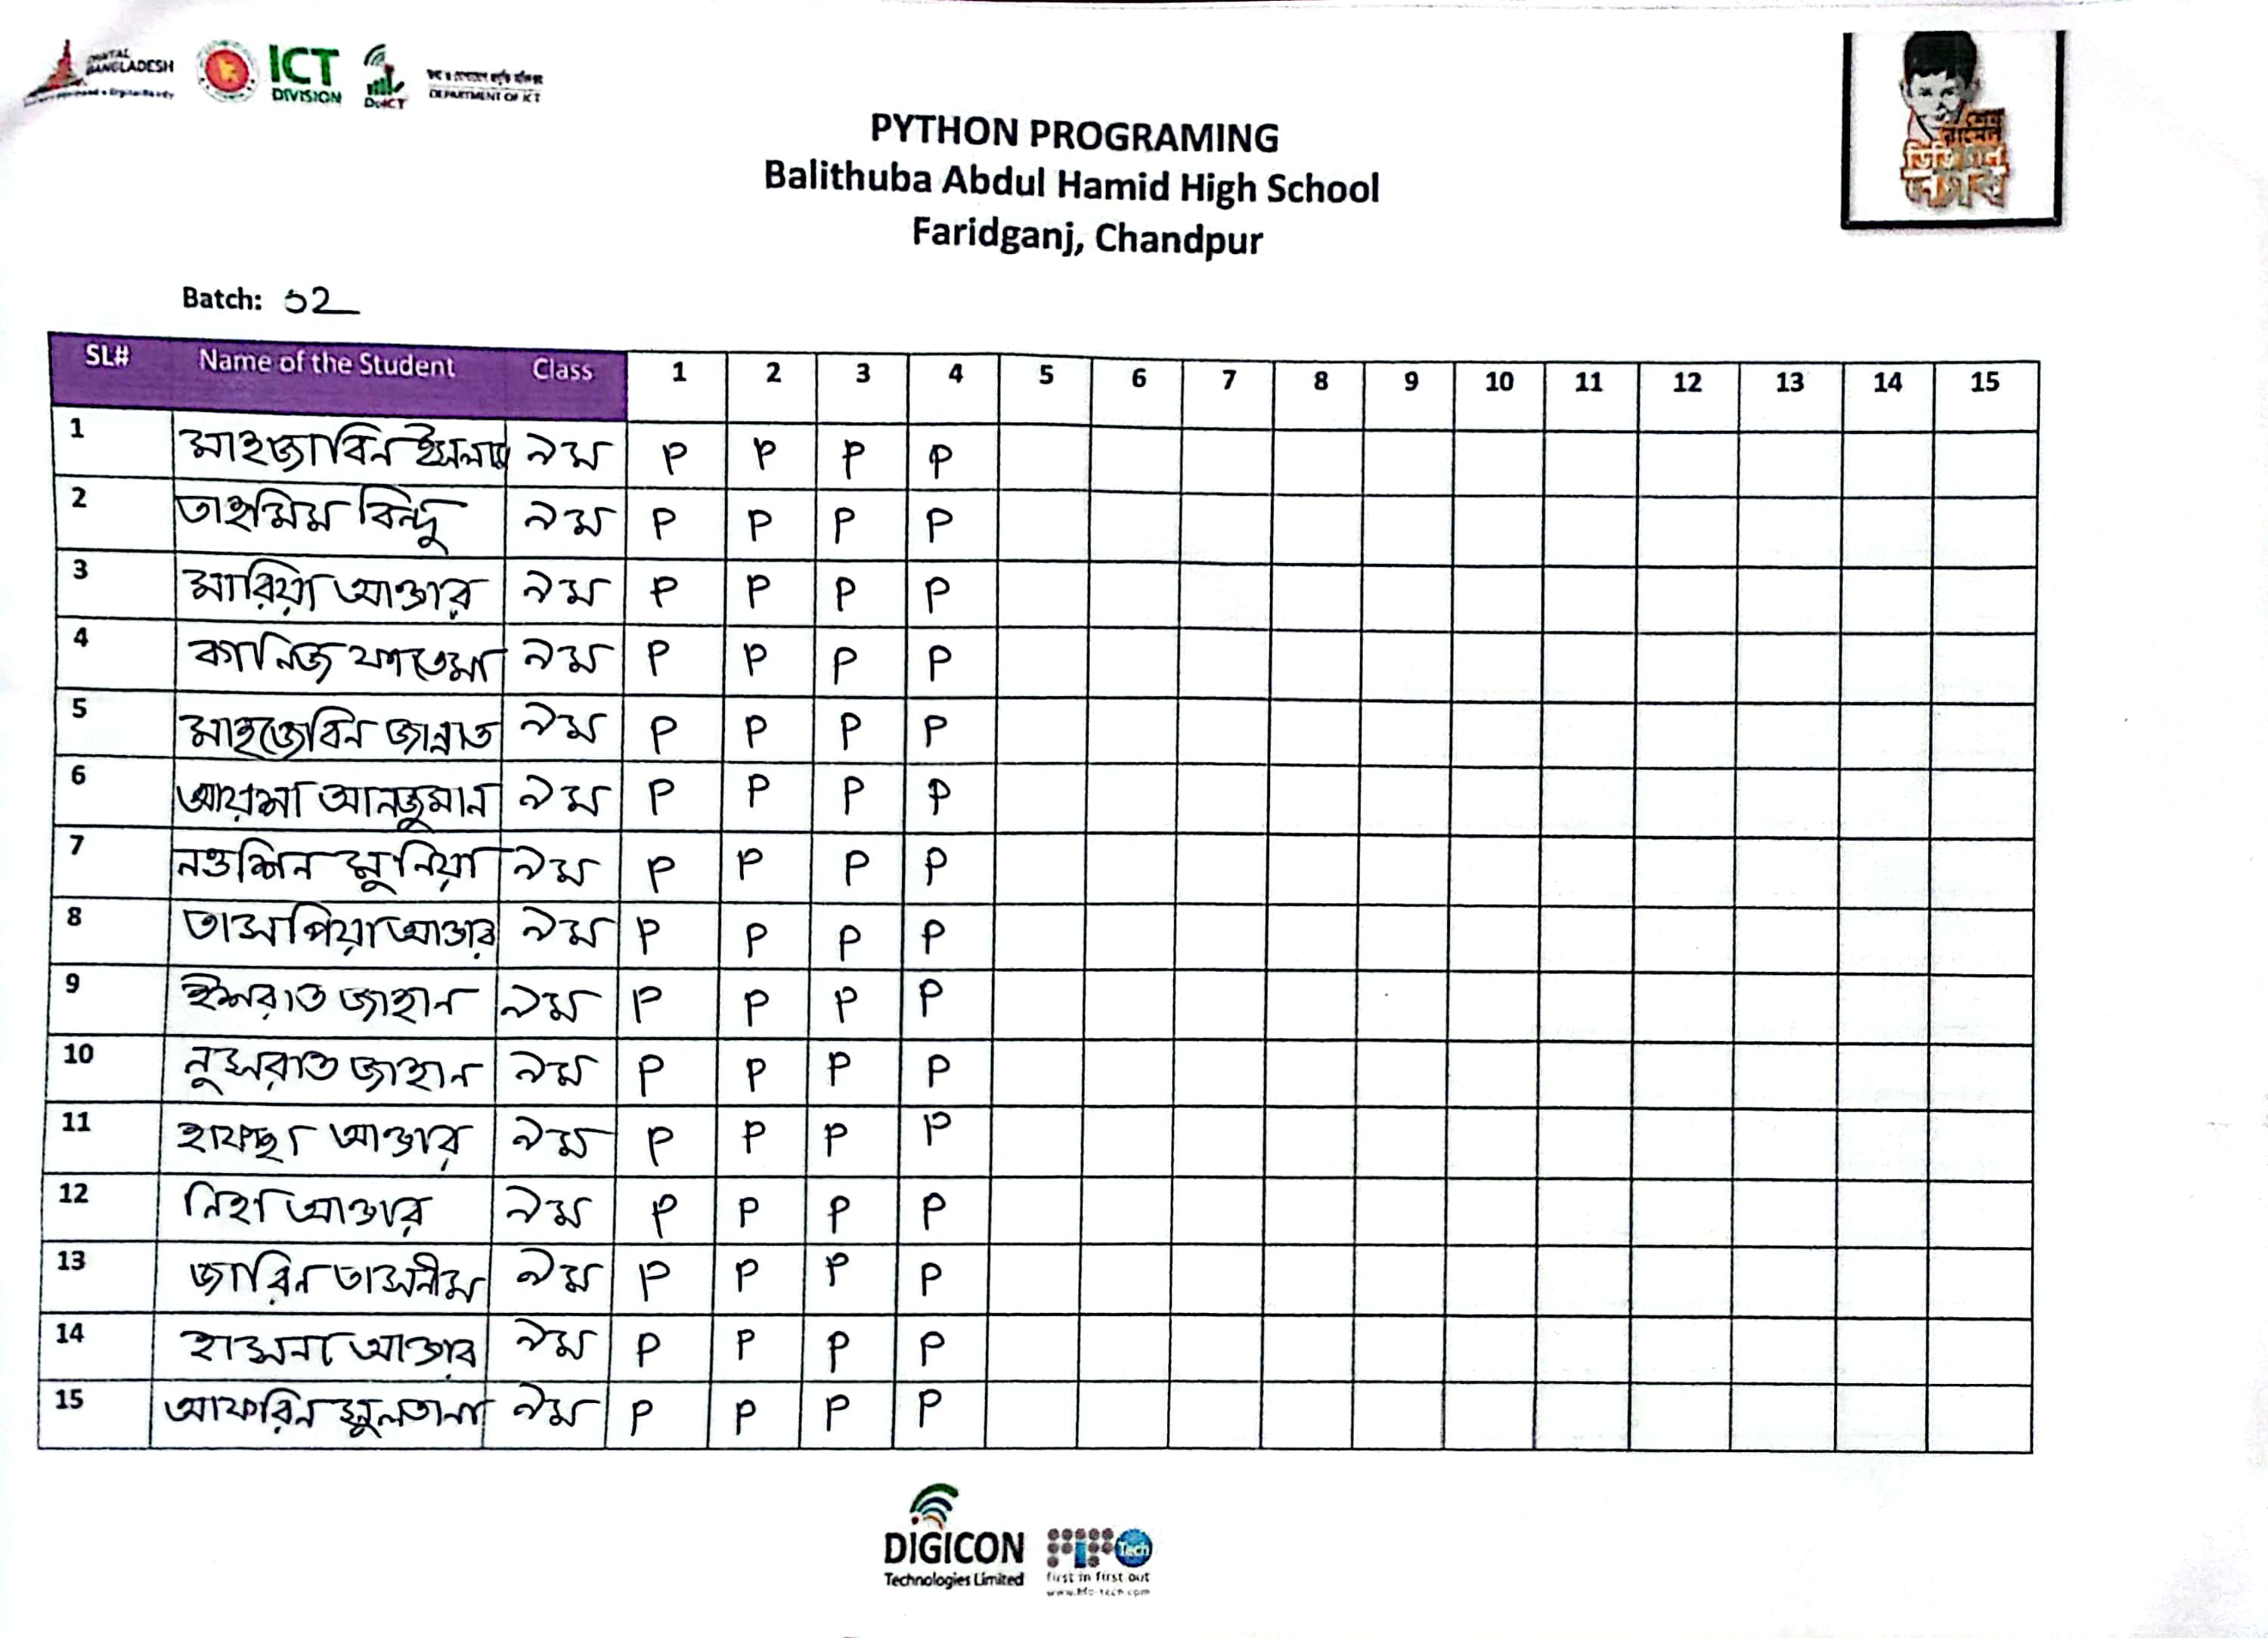 DIGITAL
BANGLADESH
ICT
DIVISION
DoICT
DEPARTMENT OF ICT
PYTHON PROGRAMING
Balithuba Abdul Hamid High School
Faridganj, Chandpur
Batch: 02
SL# Name of the Student Class 1 2 3 4 5 6 7 8 9 10 11 12 13 14 15
1 মাহজাবিন ইসলাম ৯ম P P P P
2 তাহমিম বিন্দু ৯ম P P P P
3 মারিয়া আক্তার ৯ম P P P P
4 কানিজ ফাতেমা ৯ম P P P P
5 মাহজেবিন জান্নাত ৯ম P P P P
6 আয়শা আনজুমান ৯ম P P P P
7 নওশিন মুনিয়া ৯ম P P P P
8 তাসপিয়া আক্তার ৯ম P P P P
9 ইশরাত জাহান ৯ম P P P P
10 নুসরাত জাহান ৯ম P P P P
11 হাফছা আক্তার ৯ম P P P P
12 নিহা আক্তার ৯ম P P P P
13 জারিন তাসনীম ৯ম P P P P
14 হাসনা আক্তার ৯ম P P P P
15 আফরিন সুলতানা ৯ম P P P P
DIGICON
Technologies Limited
Tech
first in first out